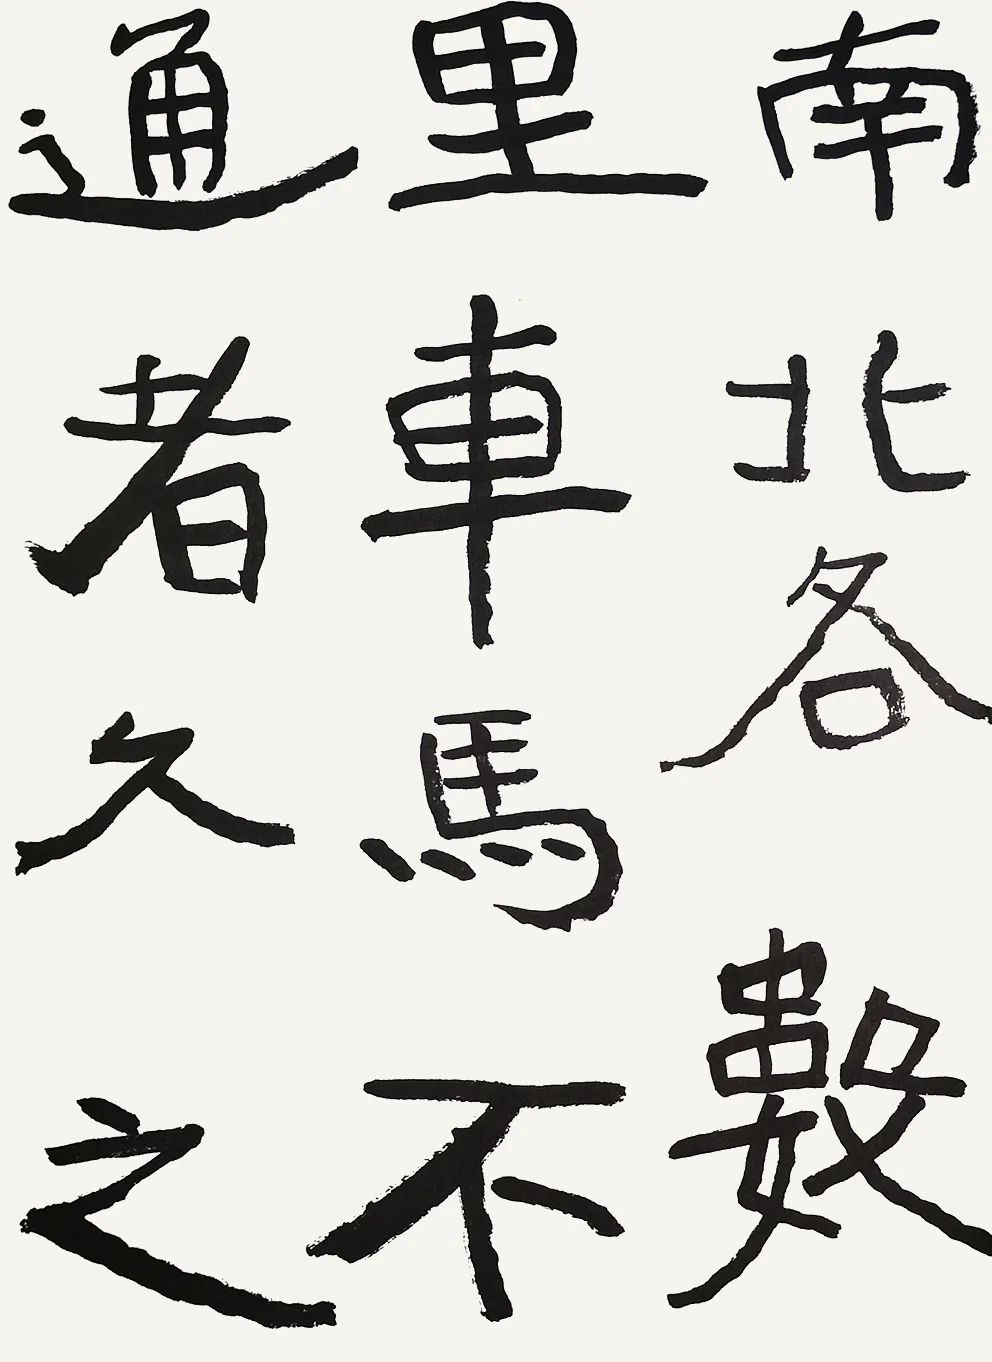 南北各數
里車馬不
通者久之